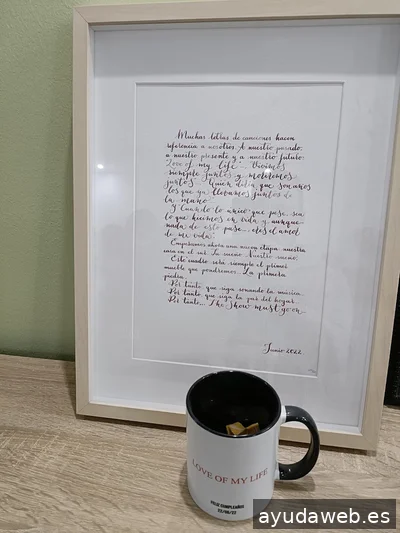 Muchas letras de canciones hacen
referencia a nosotros. A nuestro pasado,
a nuestro presente y a nuestro futuro.
"Love of my life"... Vivimos
siempre juntos y moriremos
juntos... Quien diría que son años
los que ya llevamos juntos de
la mano.
Y cuando lo único que pase sea
lo que hicimos en vida y aunque
nada de esto pase, eres el amor
de mi vida.
Empezamos ahora una nueva etapa, nuestra
casa en el sol. Tu sueño. Nuestro sueño.
Este cuadro será siempre el primer
mueble que pondremos. La primera
piedra.
Por tanto que siga sonando la música.
Por tanto que siga la paz del hogar.
Por tanto... The show must go on.
Junio 2022
LOVE OF MY LIFE
FELIZ CUMPLEAÑOS
22/06/22
ayudaweb.es